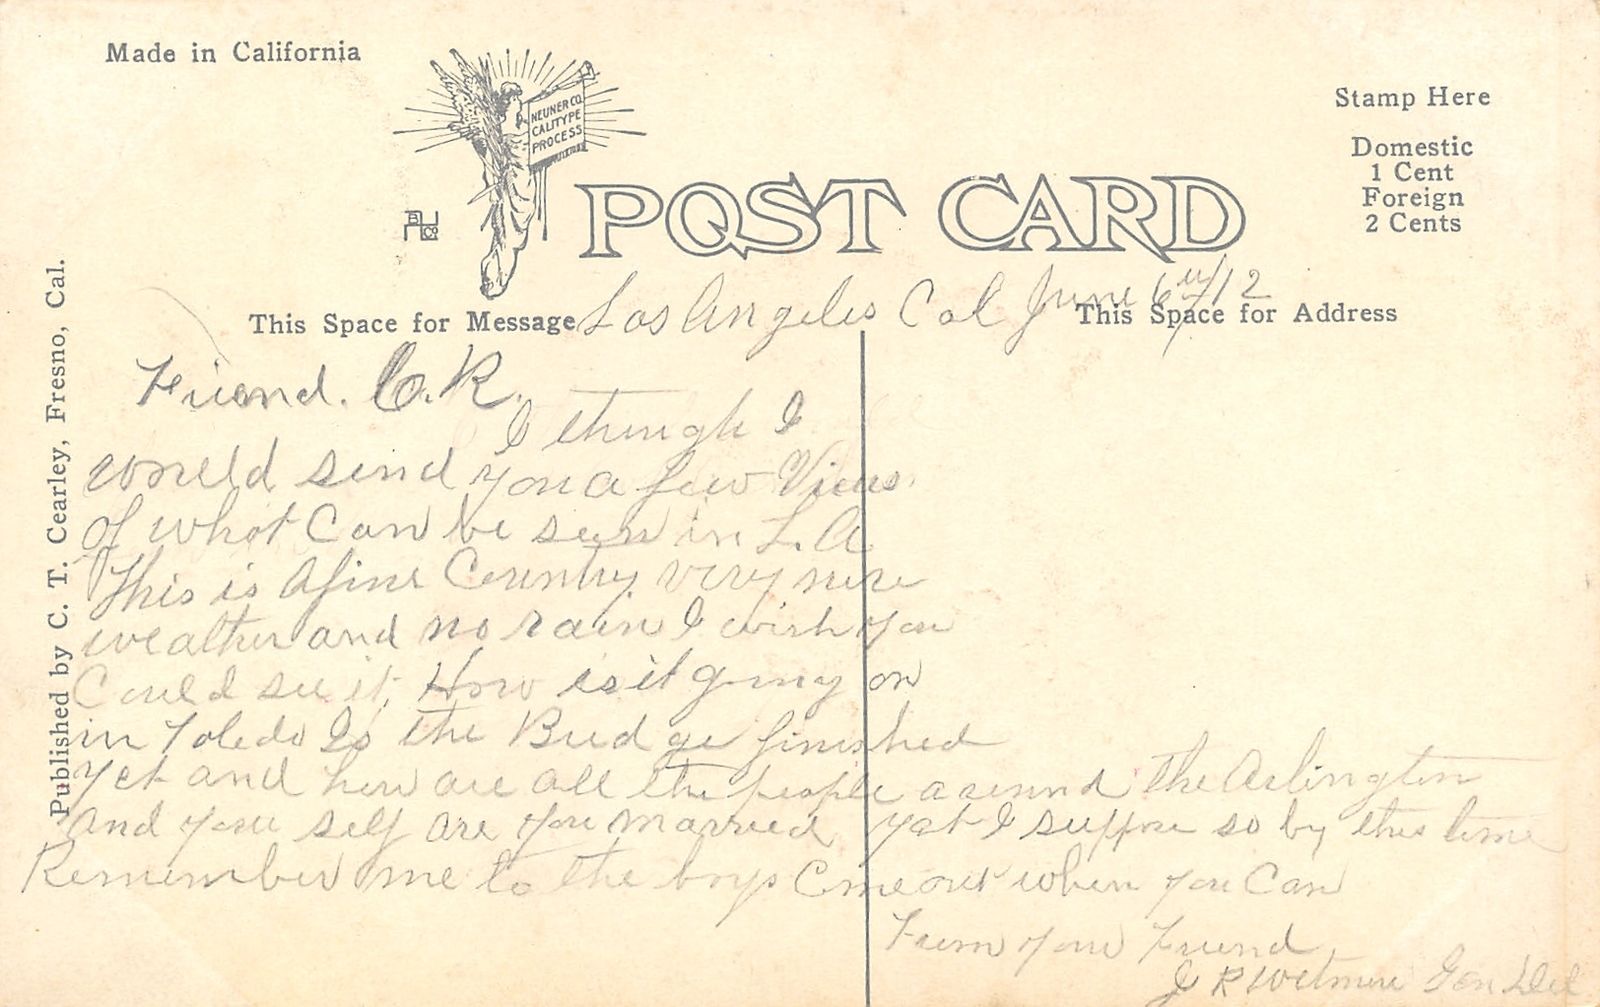 Made in California
NEUNER CO.
CALITYPE
PROCESS
Stamp Here
Domestic
1 Cent
Foreign
2 Cents
POST CARD
Published by C. T. Cearley, Fresno, Cal.
This Space for Message
This Space for Address
Los Angeles Cal June 6th/12
Friend. C. R.
I though I
would send you a few Views
of what Can be seen in L.A
This is A fine Country very nice
weather and no rain I wish you
Could see it, How is it going on
in Toledo Is the Bridge finished
yet and how are all the people around the Arlington
and your self are you married yet I suppose so by this time
Remember me to the boys Come out when you Can
From your Friend
J R Wetmore Gen Del